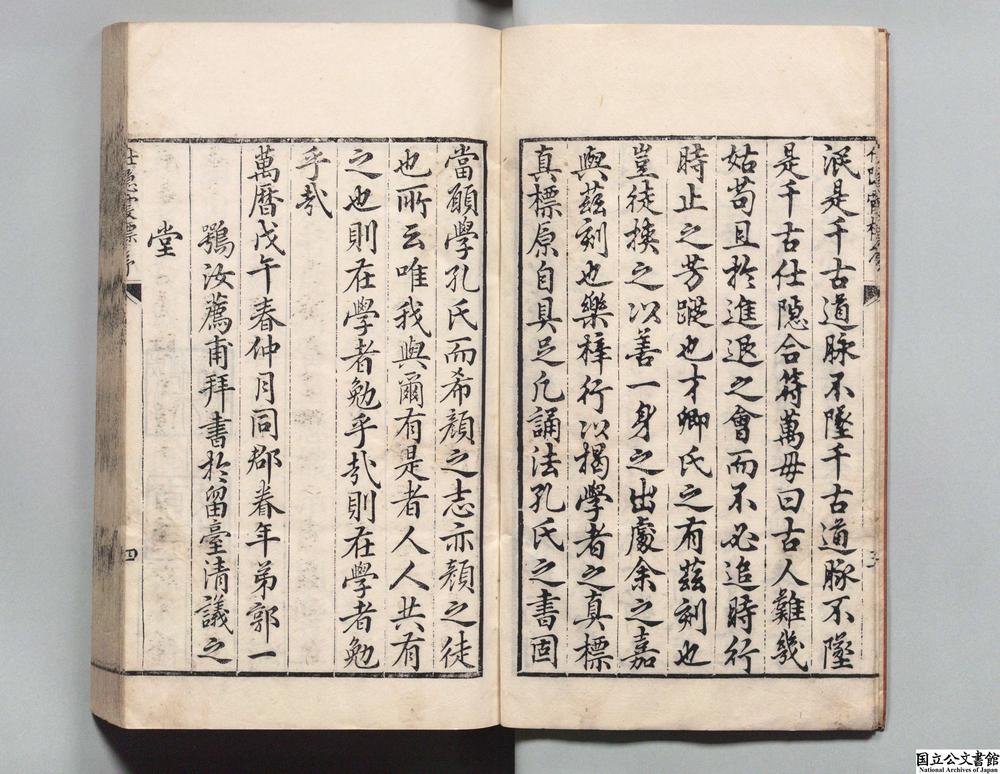 泯是千古道脉不墜千古道脉不墜
是千古仕隱合符萬毋曰古人難幾
姑苟且於進退之會而不必追時行
時止之芳蹤也才卿氏之有茲刻也
豈徒揍之以善一身之出處余之嘉
與茲刻也樂梓行以揭學者之真標
真標原自具足凡誦法孔氏之書固
當願學孔氏而希顏之志亦顏之徒
也所云唯我與爾有是者人人共有
之也則在學者勉乎哉則在學者勉
乎哉
萬曆戊午春仲月同郡眷年弟郭一
鶚汝薦甫拜書於留臺清議之
堂
四
国立公文書館
National Archives of Japan